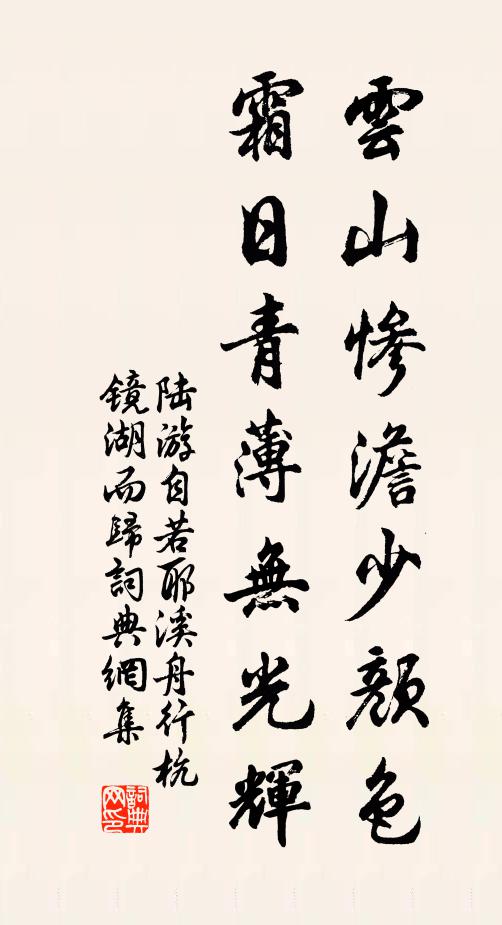 雲山慘澹少顏色
霜日青薄無光輝
陆游自若耶溪舟行杭
鏡湖而歸詞典網集
詞典网印